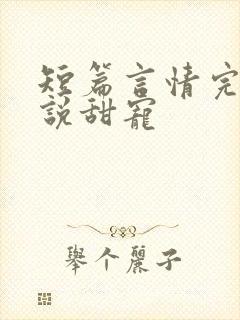 短篇言情完
説甜寵
舉个麗子